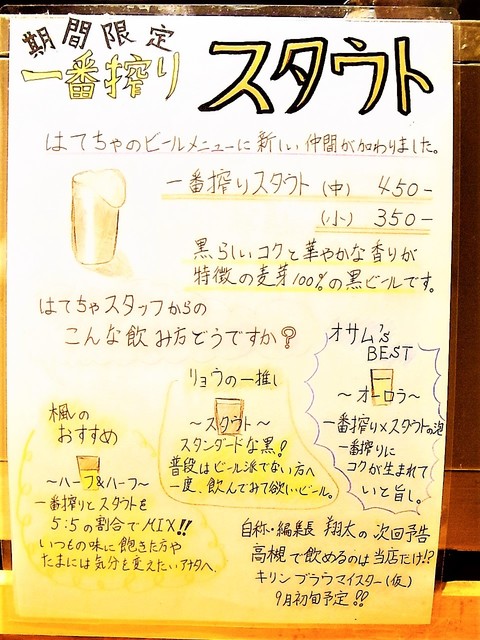 期間限定
一番搾り スタウト
はてちゃのビールメニューに新しい仲間が加わりました。
一番搾りスタウト(中) 450-
(小) 350-
黒らしいコクと華やかな香りが
特徴の麦芽100%の黒ビールです。
はてちゃスタッフからの
こんな飲み方どうですか?
オサム's
BEST
~オーロラ~
一番搾り×スタウトの泡
一番搾りに
コクが生まれて
いと旨し。
リョウの一推し
~スタウト~
スタンダードな黒!
普段はビール派でない方へ
一度、飲んでみて欲しいビール。
楓の
おすすめ
~ハーフ&ハーフ~
一番搾りとスタウトを
5:5の割合でMIX!!
いつもの味に飽きた方や
たまには気分を変えたいアナタへ
自称・編集長 翔太の次回予告
高槻で飲めるのは当店だけ!?
キリンブラウマイスター(仮)
9月初旬予定!!